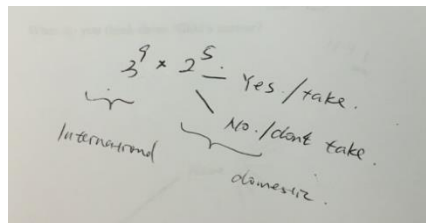 3⁹ × 2⁵. Yes./take.
No./dont take.
International
domestic.